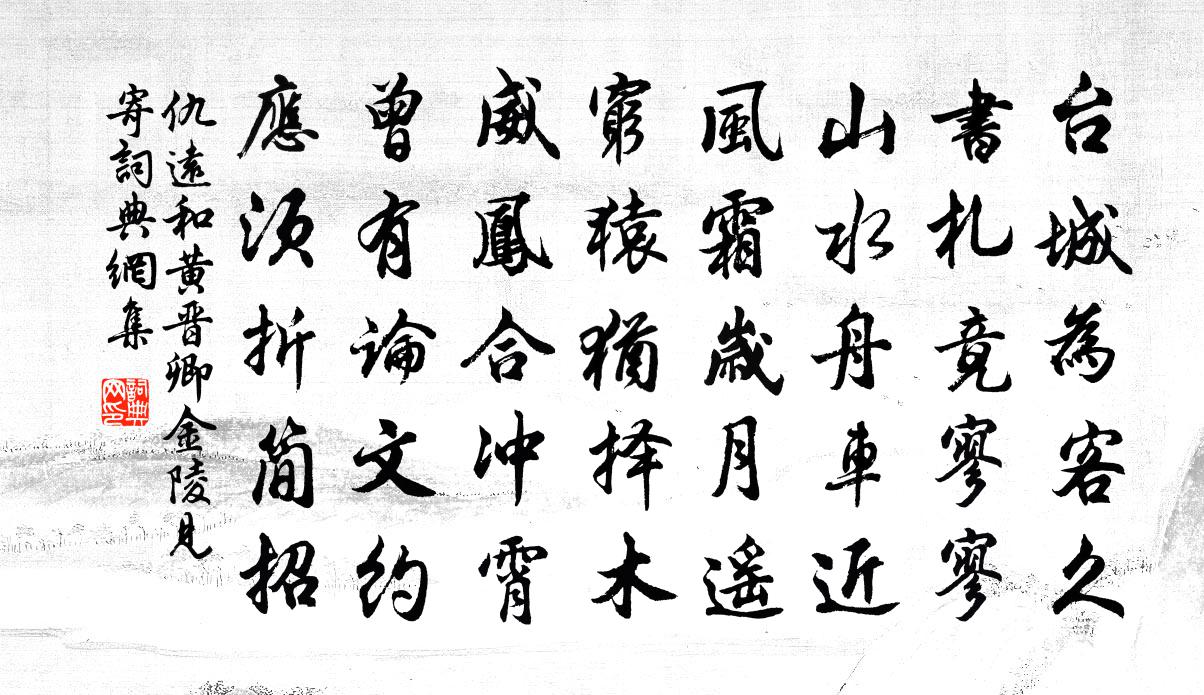 台城為客久
書札竟寥寥
山水舟車近
風霜歲月遙
窮猿猶择木
威鳳合沖霄
曾有論文約
應須折簡招
仇遠和黃晋卿金陵見
寄詞典網集
詞典网印